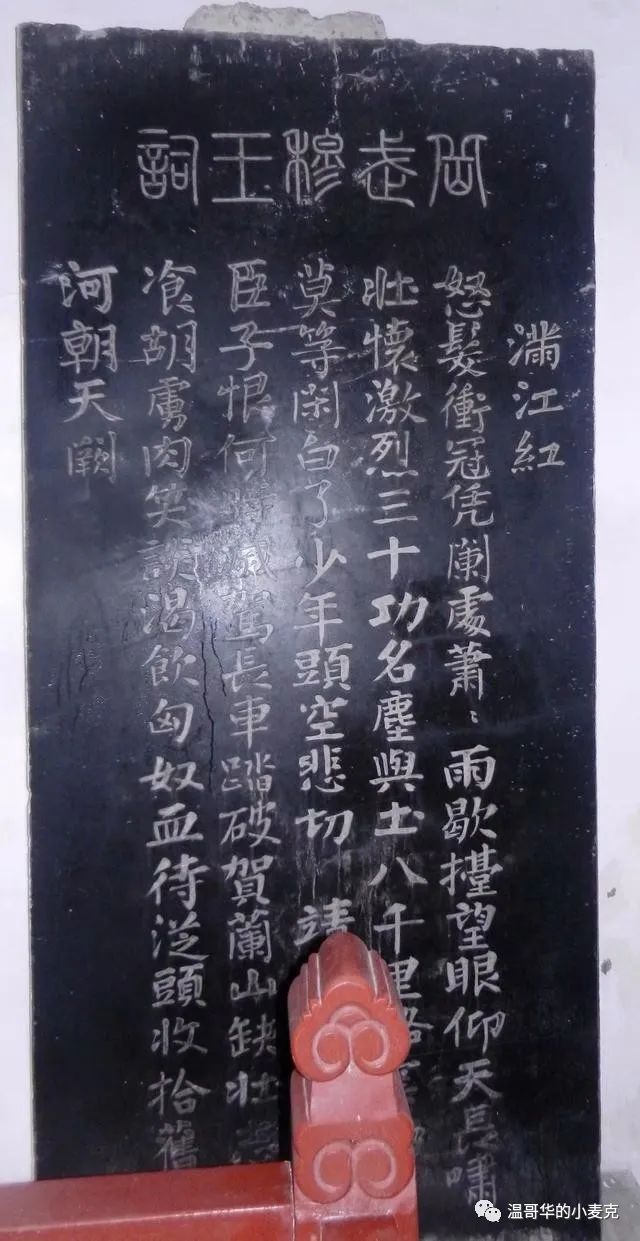 岳武穆王詞
滿江紅
怒髮衝冠凭闌處蕭〻雨歇擡望眼仰天長嘯
壯懷激烈三十功名塵與土八千里路
莫等閑白了少年頭空悲切 靖
臣子恨何時滅駕長車踏破賀蘭山缺壯
飡胡虜肉笑談渴飲匈奴血待從頭收拾舊
河朝天闕
温哥华的小麦克